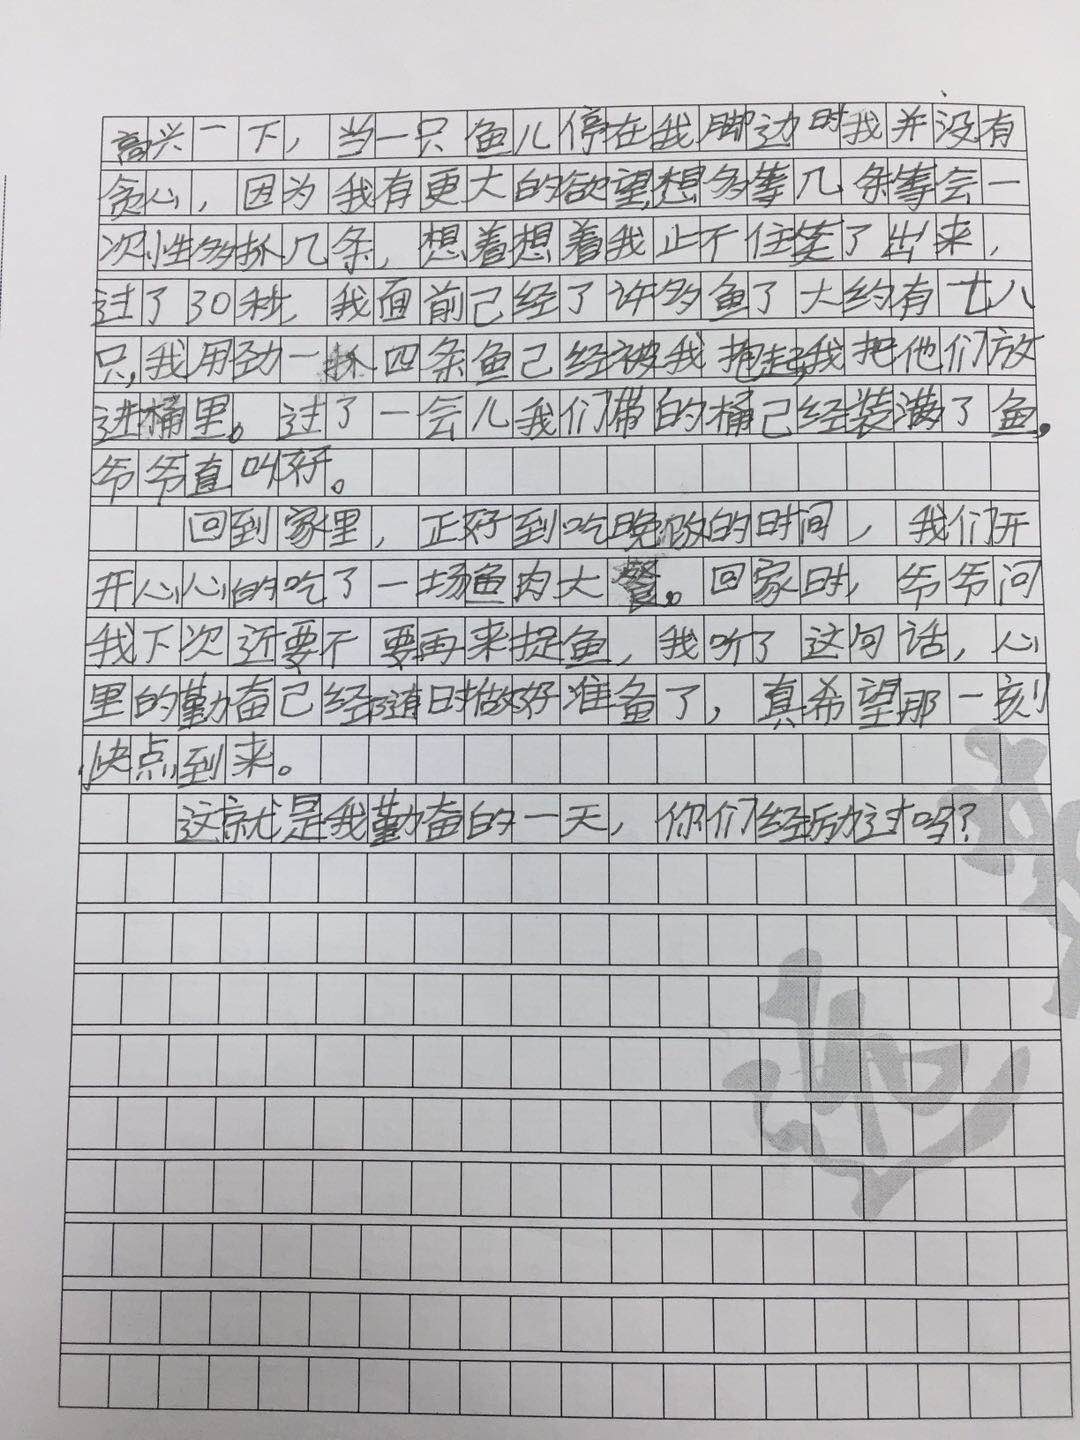 高兴一下，当一只鱼儿停在我脚边时我并没有
贪心，因为我有更大的欲望,想多等几条等会一
次性多抓几条，想着想着我止不住笑了出来，
过了30秒，我面前己经了许多鱼了大约有七八
只,我用劲一抓四条鱼己经被我抱起,我把他们放
进桶里。过了一会儿我们带的桶己经装满了鱼，
爷爷直叫好。
回到家里，正好到吃晚饭的时间，我们开
开心心的吃了一场鱼肉大餐。回家时，爷爷问
我下次近要不要再来捉鱼，我听了这句话，心
里的勤奋己经随时做好准备了，真希望那一刻
快点到来。
这就是我勤奋的一天，你们经历过吗？